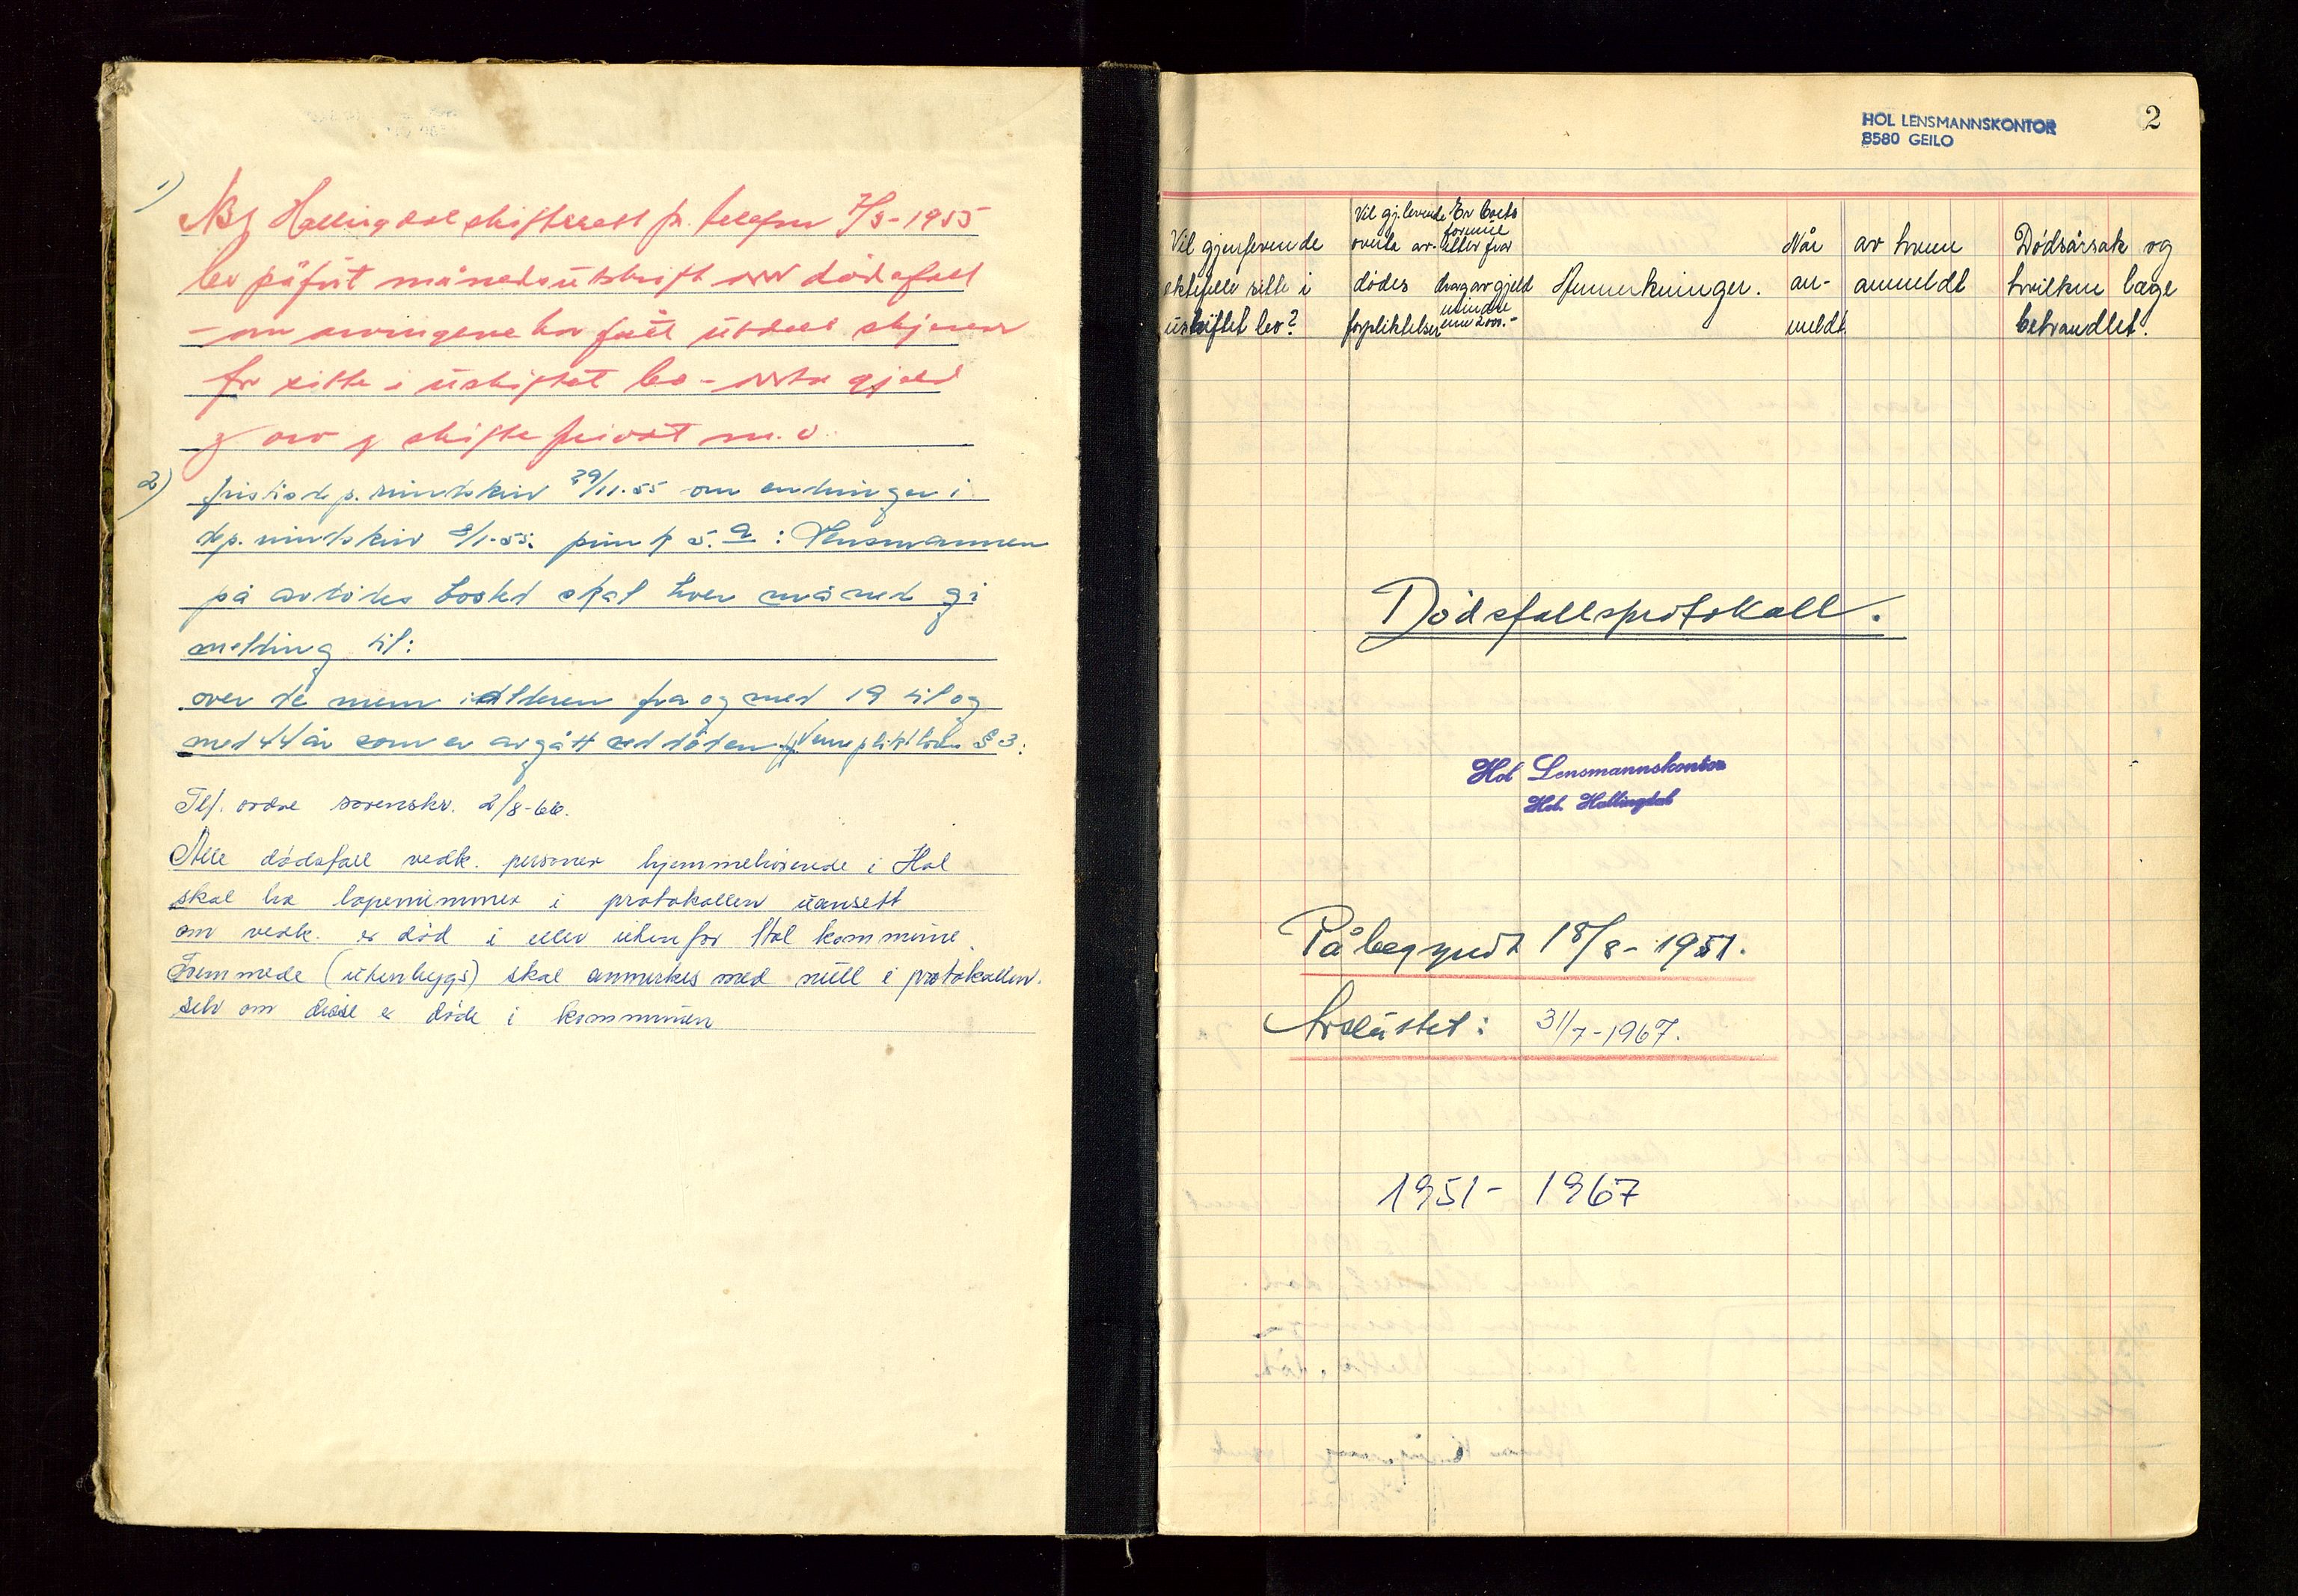 1)
NB! Hallingdal skifterett pr. telefon 7/3-1955
påført månedsutskrift om dødsfall
- om arvingene har fått utdelt skjema
for sitte i uskiftet bo -
og arv og skifte privat m.v.
2)
Justisdep. rundskriv 29/11.55 om endringer i
dep. rundskriv 8/1-55: punkt 5. a : Lensmannen
på avdødes bosted skal hver måned gi
melding til:
over de menn i alderen fra og med 19 til og
med 44 år som er avgått ved døden jf. Vernepliktsloven § 3:
Tlf. ordre sorenskr. 2/8-66.
Alle dødsfall vedk. personer hjemmehørende i Hol
skal ha løpenummer i protokollen uansett
om vedk. er død i eller utenfor Hol kommune.
Fremmede (utenbygs) skal anmerkes med null i protokollen.
selv om disse er døde i kommunen
HOL LENSMANNSKONTOR
3580 GEILO
2
Vil gjenlevende
ektefelle sitte i
uskiftet bo?
Vil gj.levende
overta av-
dødes
forpliktelser
Er boets
formue
etter fra-
drag av gjeld
mindre
enn 2000.-
Anmerkninger.
Når
an-
meldt
av hvem
anmeldt
Dødsårsak og
hvilken læge
behandlet.
Dødsfallsprotokoll.
Hol Lensmannskontor
Hol. Hallingdal
Påbegyndt 18/8-1951.
Avsluttet: 31/7-1967.
1951 - 1967